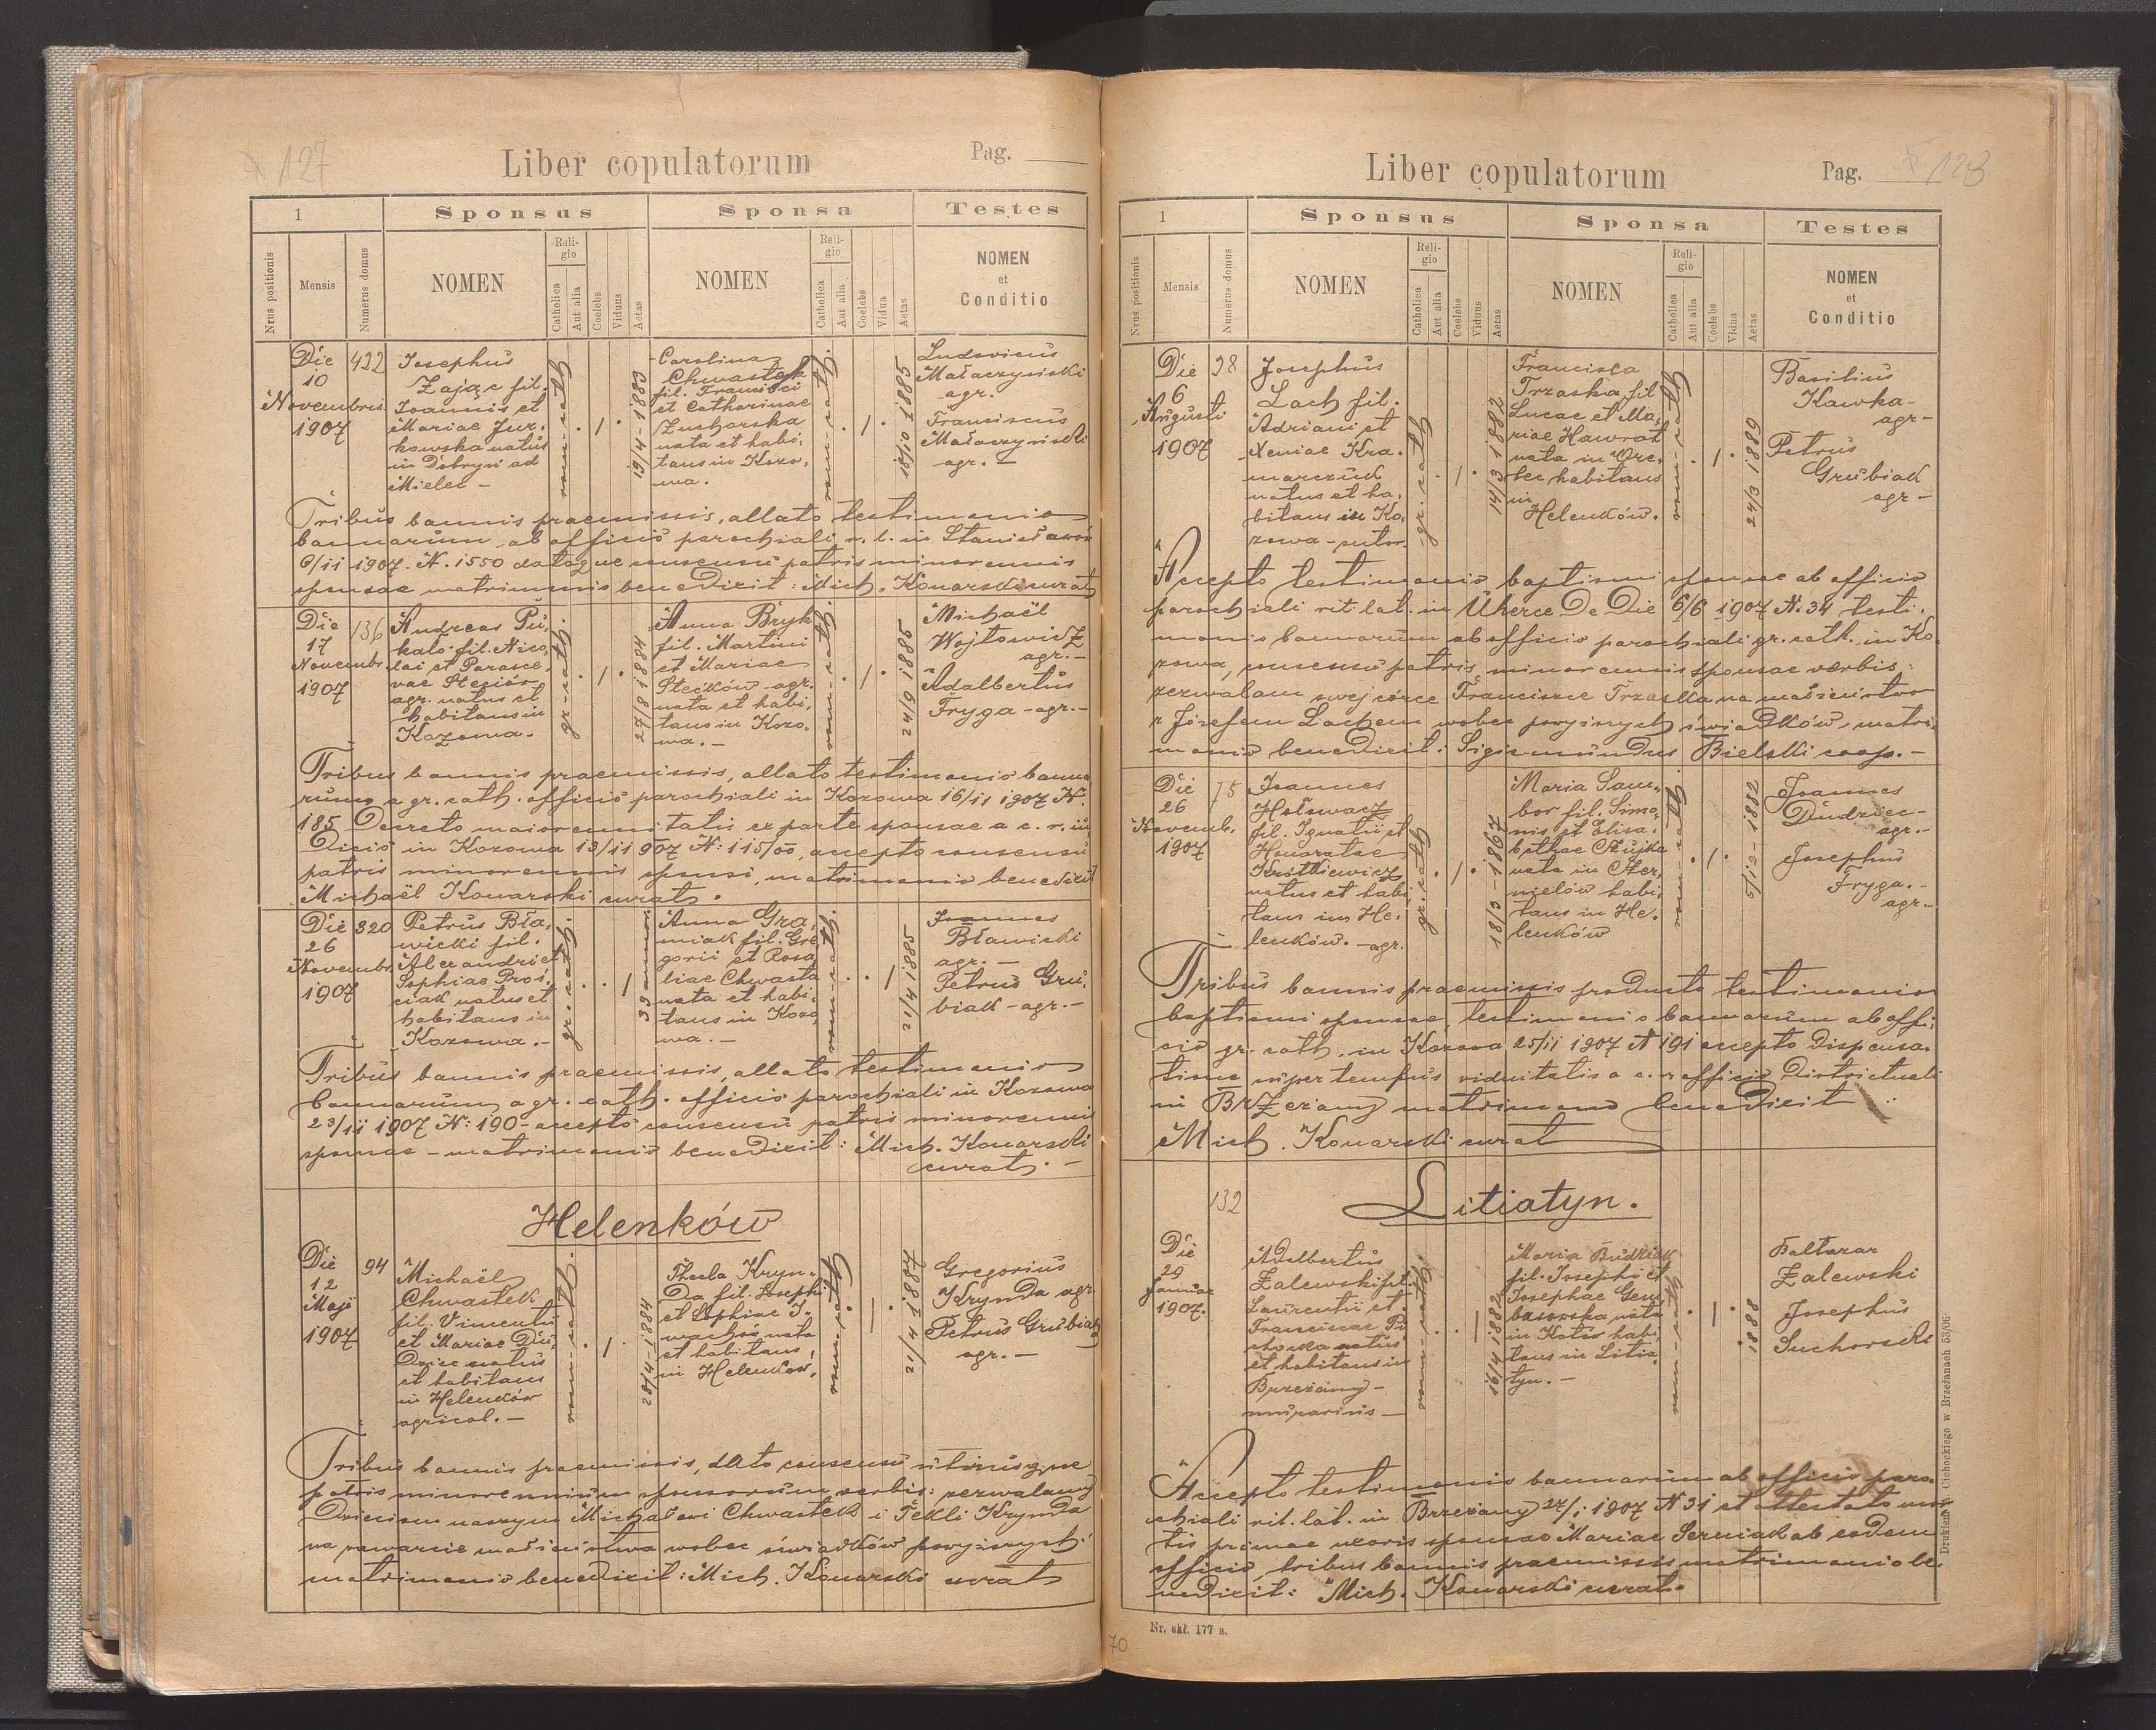 127
Liber copulatorum
Pag.
1
Sponsus
Sponsa
Testes
Nrus positionis
Mensis
Numerus domus
NOMEN
Religio
Catholica
Aut alia
Coelebs
Viduus
Aetas
NOMEN
Religio
Catholica
Aut alia
Coelebs
Vidua
Aetas
NOMEN
et
Conditio
Die
10
Novembris
1907
422
Josephus
Zając fil.
Joannis et
Mariae Jur-
kowska natus
in Dobryn ad
Mielec -
rom-cath
. 1 .
19/4-1883
Carolina
Chwastek
fil. Francisci
et Catharinae
Zucharska
nata et habi-
tans in Kozo-
wa.
rom-cath.
. 1 .
18/10 1885
Ludovicus
Małaczyński
agr.
Franciscus
Małaczyński
agr. -
Tribus bannis praemissis, allato testimonio
bannorum ab officio parochiali r. l. in Stanisławów
6/11 1907. N. 1550 datoque consensu patris minorennis
sponsae matrimonio benedixit: Mich. Konarski curat
Die
17
Novembr.
1907
136
Andreas Pu-
kało fil. Nico-
lai et Parasce-
vae Steciów
agr. natus et
habitans in
Kozowa.
gr-cath.
. 1 .
27/8 1884
Anna Bryk
fil. Martini
et Mariae
Stećków - agr.
nata et habi-
tans in Kozo-
wa. -
rom-cath.
. 1 .
24/6 1886
Michaël
Wojtowicz
agr. -
Adalbertus
Fryga - agr. -
Tribus bannis praemissis, allato testimonio banno-
rum a gr. cath. officio parochiali in Kozowa 16/11 1907 N.
185 Decreto maiorennitatis ex parte sponsae a c. r. iu-
dicio in Kozowa 13/11 907 N: 115/00, accepto consensu
patris minorennis sponsi, matrimonio benedixit
Michaël Konarski curat.
Die
26
Novembr.
1907
320
Petrus Bła-
wicki fil.
Alexandri et
Sophiae Proś-
ciak natus et
habitans in
Kozowa. -
gr. cath.
. . 1
33 annor.
Anna Gra-
niak fil. Gre-
gorii et Rosa-
liae Chwasta
nata et habi-
tans in Kozo-
wa. -
rom-cath.
. . 1
12/4 1885
Joannes
Bławicki
agr. -
Petrus Gru-
biak - agr. -
Tribus bannis praemissis, allato testimonio
bannorum a gr. cath. officio parochiali in Kozowa
23/11 1907 N: 190 - accepto consensu patris minorennis
sponsae - matrimonio benedixit: Mich. Konarski
curat. -
Helenków
Die
12
Maji
1907
94
Michaël
Chwastek
fil. Vincentii
et Mariae Du-
dziec natus
et habitans
in Helenków
agricol. -
rom-cath.
. 1 .
28/4-1884
Thecla Kryn-
da fil. Josephi
et Sophiae I-
wachów nata
et habitans
in Helenków.
rom-cath.
1
12/4 1887
Gregorius
Krynda agr
Petrus Grubiak
agr. -
Tribus bannis praemissis, dato consensu utriusque
patris minorennium sponsorum verbis: zezwalamy
dzieciom naszym Michałowi Chwastek i Tekli Krynda
na zawarcie małżeństwa wobec świadków powyższych:
matrimonio benedixit: Mich. Konarski curat
128
Liber copulatorum
Pag.
1
Sponsus
Sponsa
Testes
Nrus positionis
Mensis
Numerus domus
NOMEN
Religio
Catholica
Aut alia
Coelebs
Viduus
Aetas
NOMEN
Religio
Catholica
Aut alia
Coelebs
Vidua
Aetas
NOMEN
et
Conditio
Die
6
Augusti
1907
28
Josephus
Lach fil.
Adriani et
Xeniae Kra-
marczuk
natus et ha-
bitans in Ko-
zowa - sutor.
gr. cath
. 1 .
14/3 1882
Francisca
Trzaska fil
Lucae et Ma-
riae Hawrot
nata in Orze-
bec habitans
in
Helenków.
rom-cath
. 1 .
24/3 1889
Basilius
Kawka -
agr -
Petrus
Grubiak
agr -
Accepto testimonio baptismi sponsae ab officio
parochiali rit. lat. in Uherce de die 6/6 1907 N. 34 testi-
monio bannorum ab officio parochiali gr. cath. in Ko-
zowa, consensu patris minorennis sponsae verbis:
zezwalam swej córce Franciszce Trzaska na małżeństwo
z Józefem Lachem wobec powyższych świadków, matri-
monio benedixit: Sigismundus Bielski coop. -
Die
26
Novemb.
1907
75
Joannes
Hołowacz
fil. Ignatii et
Honoratae
Krótkiewicz
natus et habi-
tans in He-
lenków. - agr.
gr. cath
. 1 .
18/3-1867
Maria Sam-
bor fil. Simo-
nis et Elisa-
bethae Czujka
nata in Czer-
nielów habi-
tans in He-
lenków
rom-cath.
. 1 .
5/12-1882
Joannes
Dudziec -
agr. -
Josephus
Fryga. -
agr. -
Tribus bannis praemissis producto testimonio
baptismi sponsae, testimonio bannorum ab offi-
cio gr. cath. in Kozowa 25/11 1907 N 191 accepto dispensa-
tione super tempus viduitatis a c. r. officio Districtuali
in Brzeżany matrimonio benedixit
Mich. Konarski curat
Litiatyn.
132
Die
29
Januar
1907.
Adalbertus
Zalewski fil.
Laurentii et
Franciscae Pi-
chocka natus
et habitans in
Brzeżany -
muparius -
rom-cath.
. . 1
16/4 1882
Maria Budziak
fil. Josephi et
Josephae Gem-
barowska nata
in Kotów habi-
tans in Litia-
tyn. -
rom-cath
. 1 .
1888
Baltazar
Zalewski
Josephus
Suchorski
Accepto testimonio bannorum ab officio paro-
chiali rit. lat. in Brzeżany 27/1 1907 N 31 et attestato mor-
tis primae uxoris sponsae Mariae Serniak ab eodem
officio, tribus bannis praemissis matrimonio be-
nedixit: Mich. Konarski curat.
Drukiem Cichockiego w Brzeżanach 53/06
Nr. skł. 177 a.
70